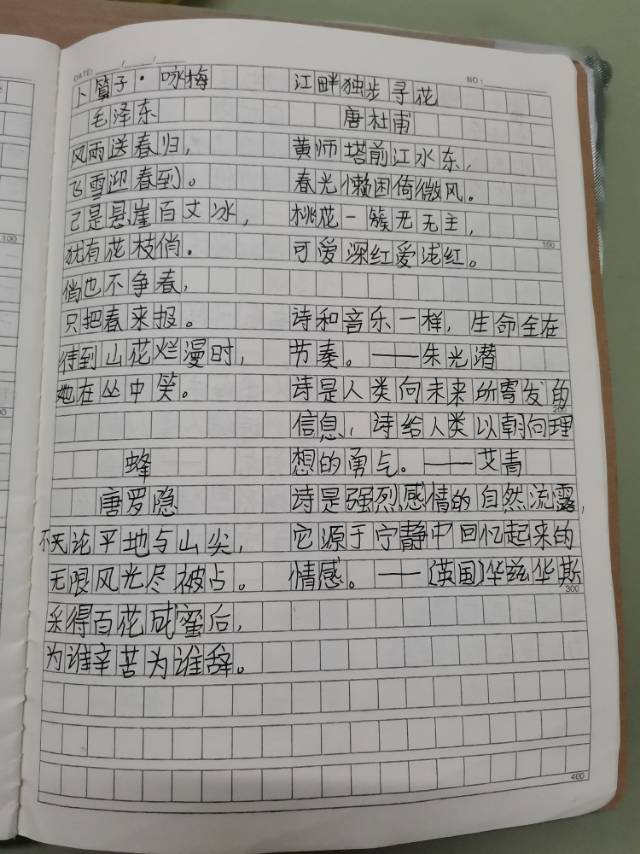 DATE: / /
卜算子·咏梅
毛泽东
风雨送春归，
飞雪迎春到。
已是悬崖百丈冰，
犹有花枝俏。
俏也不争春，
只把春来报。
待到山花烂漫时，
她在丛中笑。
蜂
唐罗隐
不无论平地与山尖，
无限风光尽被占。
采得百花成蜜后，
为谁辛苦为谁辞。
NO:
江畔独步寻花
唐杜甫
黄师塔前江水东，
春光懒困倚微风。
桃花一簇无无主，
可爱深红爱浅红。
诗和音乐一样，生命全在
节奏。——朱光潜
诗是人类向未来所寄发的
信息，诗给人类以朝向理
想的勇气。——艾青
诗是强烈感情的自然流露，
它源于宁静中回忆起来的
情感。——[英国]华兹华斯
100
100
200
300
400